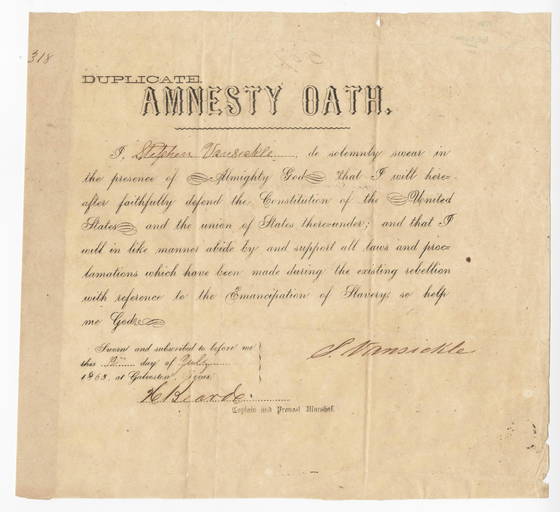 318
DUPLICATE.
AMNESTY OATH.
I, Stephen Vansickle, do solemnly swear in
the presence of Almighty God that I will here-
after faithfully defend the Constitution of the United
States and the union of States thereunder; and that I
will in like manner abide by and support all laws and proc-
lamations which have been made during the existing rebellion
with reference to the Emancipation of Slavery; so help
me God.
Sworn and subscribed to before me
this day of July
at Galveston, Texas
S. Vansickle
Captain and Provost Marshal.